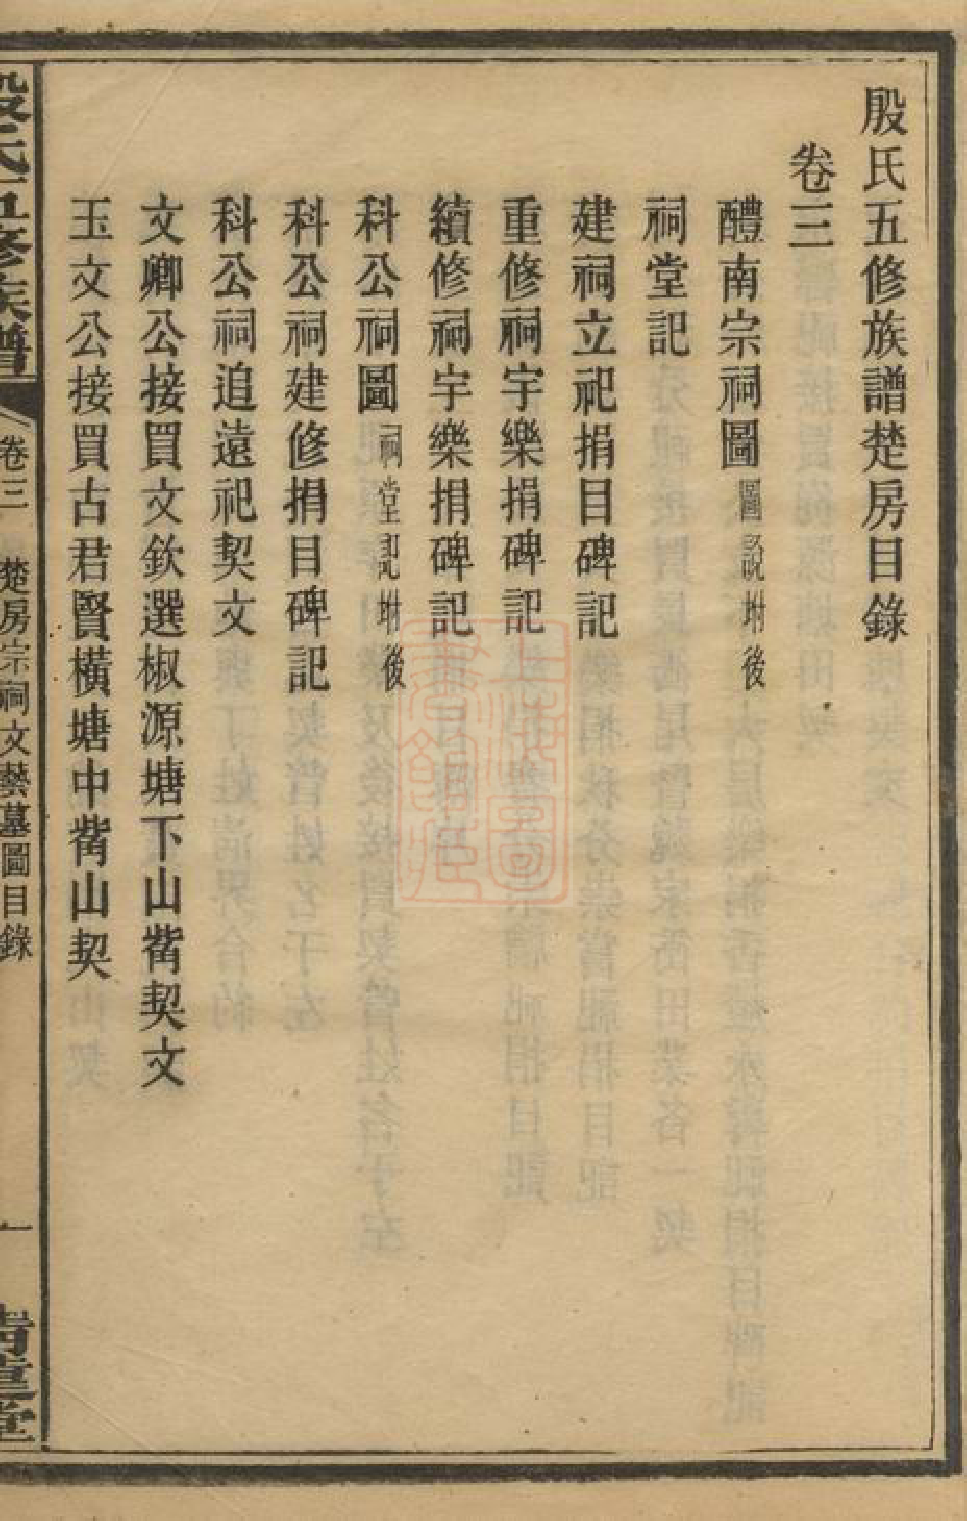 殷氏五修族譜楚房目錄
卷三
醴南宗祠圖 圖說坿後
祠堂記
建祠立祀捐目碑記
重修祠宇樂捐碑記
續修祠宇樂捐碑記
科公祠圖 祠堂記坿後
科公祠建修捐目碑記
科公祠追遠祀契文
文卿公接買文欽選椒源塘下山觜契文
玉文公接買古君賢橫塘中觜山契
殷氏五修族譜
卷三
楚房宗祠文藝墓圖目錄
一
上海圖書館藏